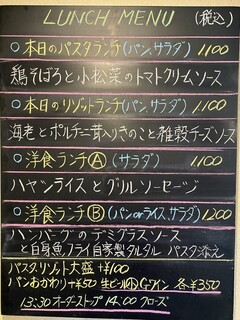 LUNCH MENU (税込)
○本日のパスタランチ(パン、サラダ) 1100
鶏そぼろと小松菜のトマトクリームソース
○本日のリゾットランチ(パン、サラダ) 1100
海老とポルチーニ茸入りきのこと雑穀チーズソース
○洋食ランチⒶ(サラダ) 1100
ハヤシライスとグリルソーセージ
○洋食ランチⒷ(パンorライス、サラダ) 1200
ハンバーグのデミグラスソース
と白身魚フライ自家製タルタル パスタ添え
パスタリゾット大盛+¥100
パンおかわり+¥50 生ビール Gワイン 各¥350
13:30 オーダーストップ 14:00 クローズ